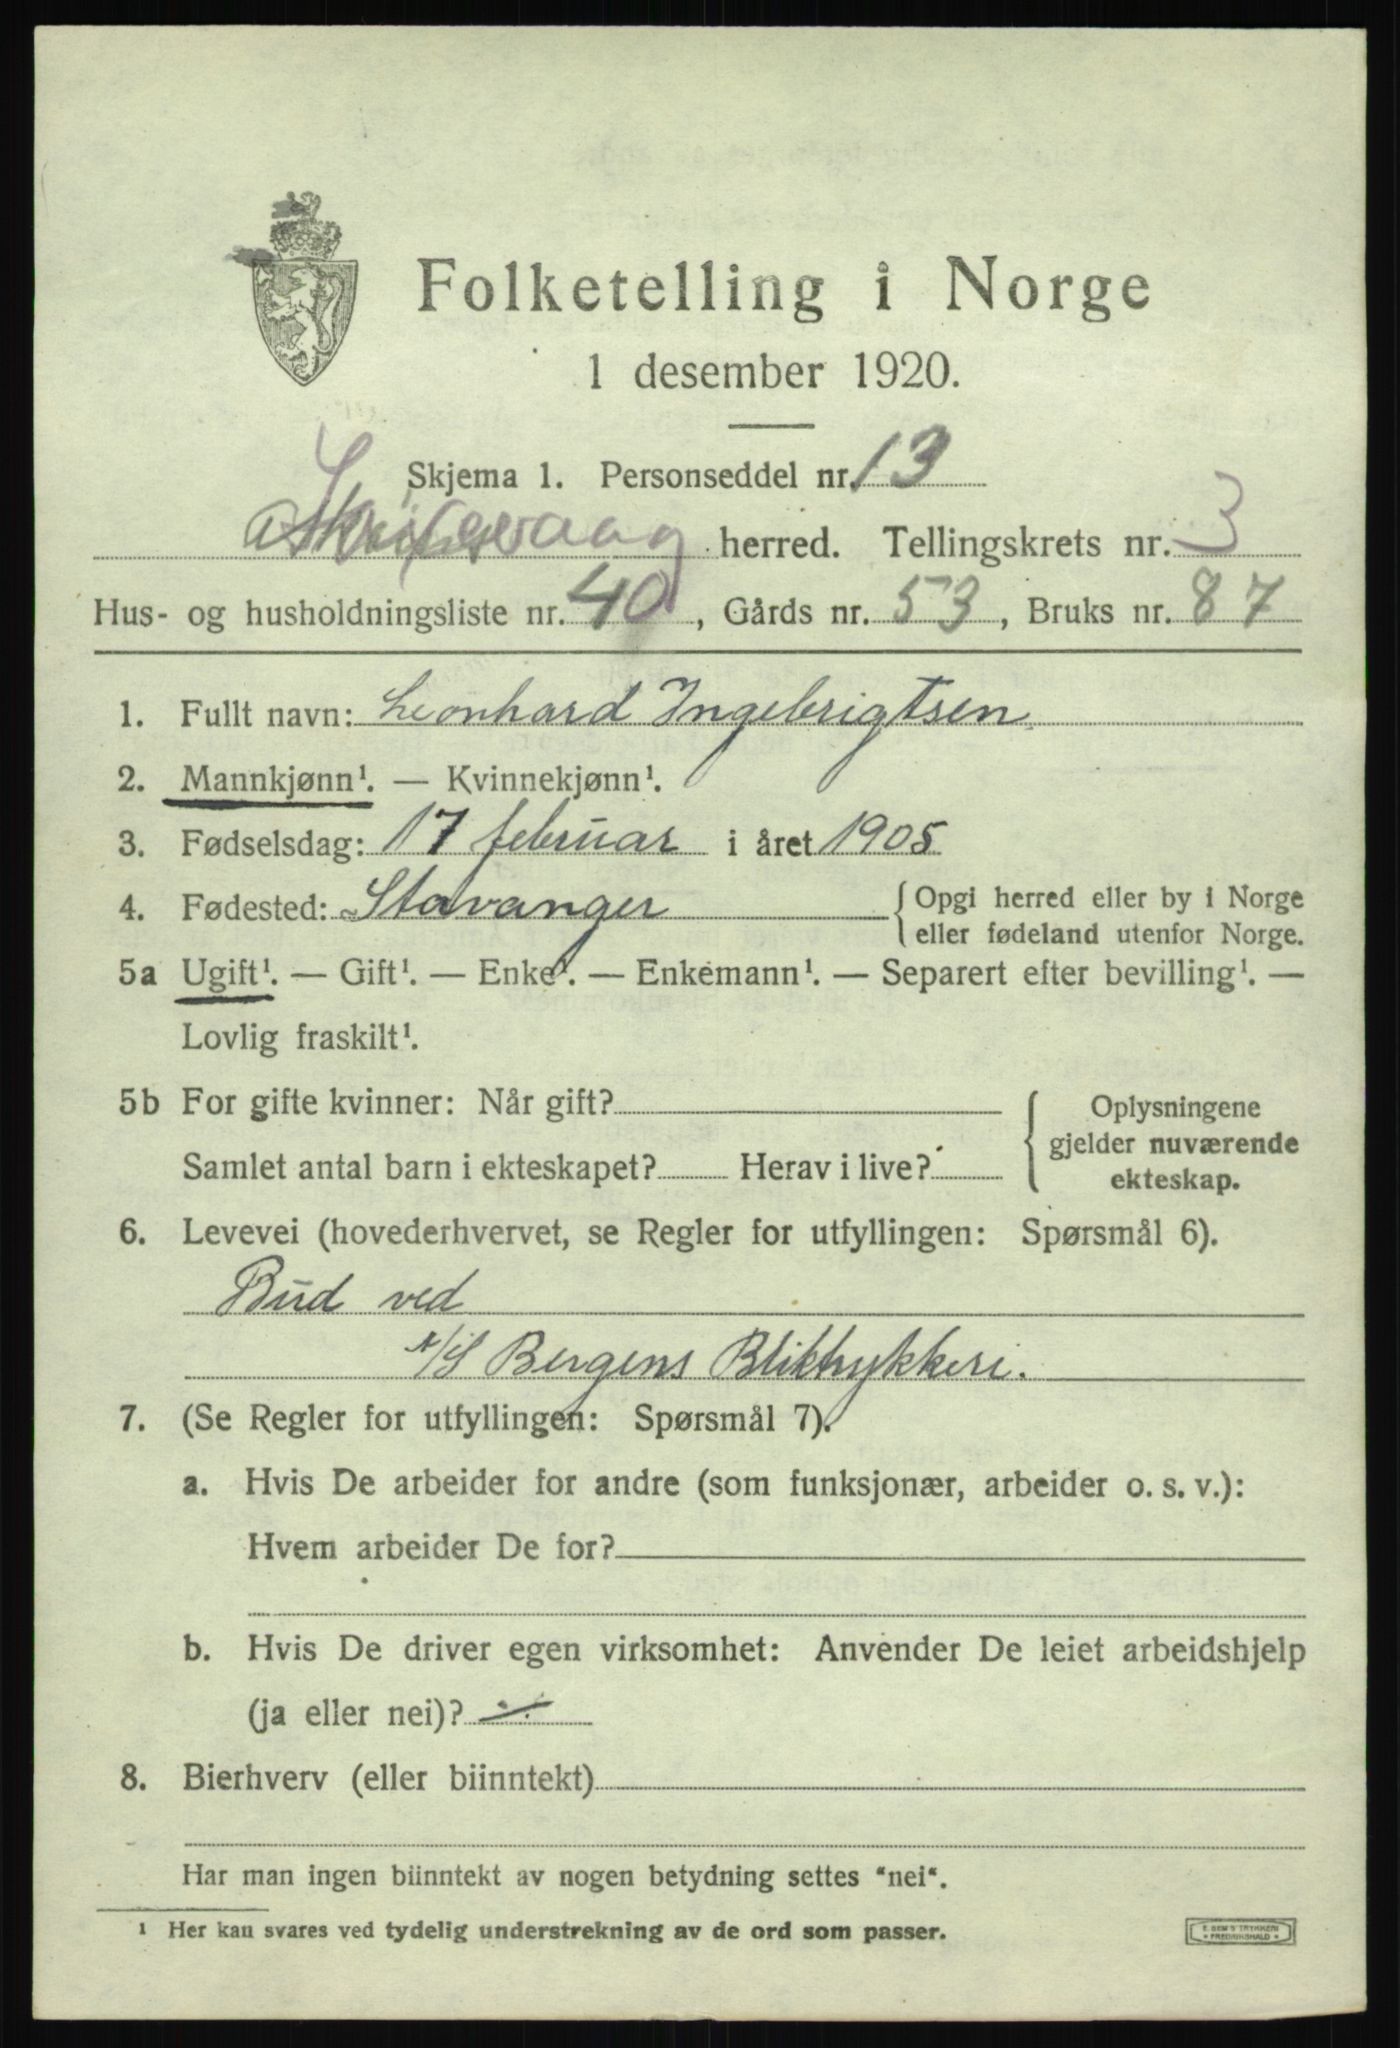 Folketelling i Norge
1 desember 1920.
Skjema 1. Personseddel nr. 13
Laksevaag herred. Tellingskrets nr. 3
Hus- og husholdningsliste nr. 40, Gårds nr. 53, Bruks nr. 87
1. Fullt navn: Leonhard Ingebrigtsen
2. Mannkjønn¹. — Kvinnekjønn¹.
3. Fødselsdag: 17 februar i året 1905
4. Fødested: Stavanger { Opgi herred eller by i Norge
eller fødeland utenfor Norge.
5a Ugift¹. — Gift¹. — Enke¹. — Enkemann¹. — Separert efter bevilling¹. —
Lovlig fraskilt¹.
5b For gifte kvinner: Når gift?
Samlet antal barn i ekteskapet? Herav i live?
Oplysningene
gjelder nuværende
ekteskap.
6. Levevei (hovederhvervet, se Regler for utfyllingen: Spørsmål 6).
Bud ved
A/S Bergens Bliktrykkeri.
7. (Se Regler for utfyllingen: Spørsmål 7).
a. Hvis De arbeider for andre (som funksjonær, arbeider o. s. v.):
Hvem arbeider De for?
b. Hvis De driver egen virksomhet: Anvender De leiet arbeidshjelp
(ja eller nei)? ÷
8. Bierhverv (eller biinntekt)
Har man ingen biinntekt av nogen betydning settes "nei".
¹ Her kan svares ved tydelig understrekning av de ord som passer.
E. SEM'S TRYKKERI
FREDRIKSHALD